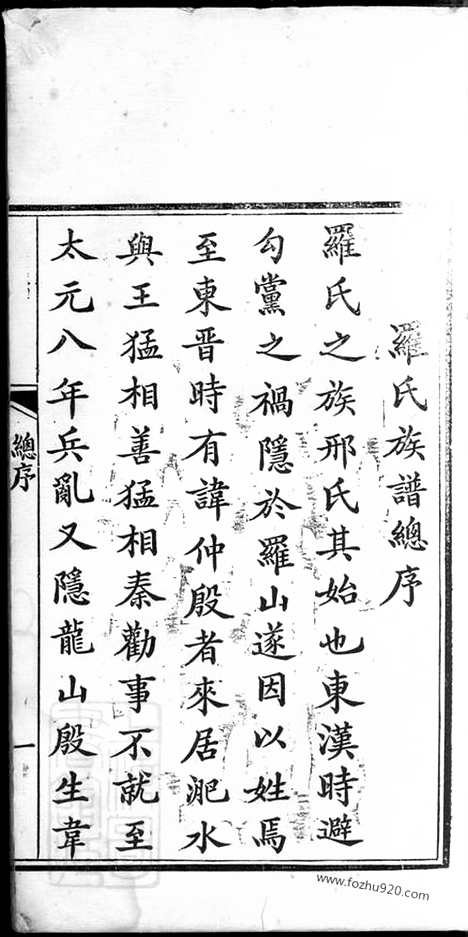 羅氏族譜總序
羅氏之族邢氏其始也東漢時避
勾黨之禍隱於羅山遂因以姓焉
至東晋時有諱仲殷者來居淝水
與王猛相善猛相秦勸事不就至
太元八年兵亂又隱龍山殷生韋
總序
一
www.fozhu920.com